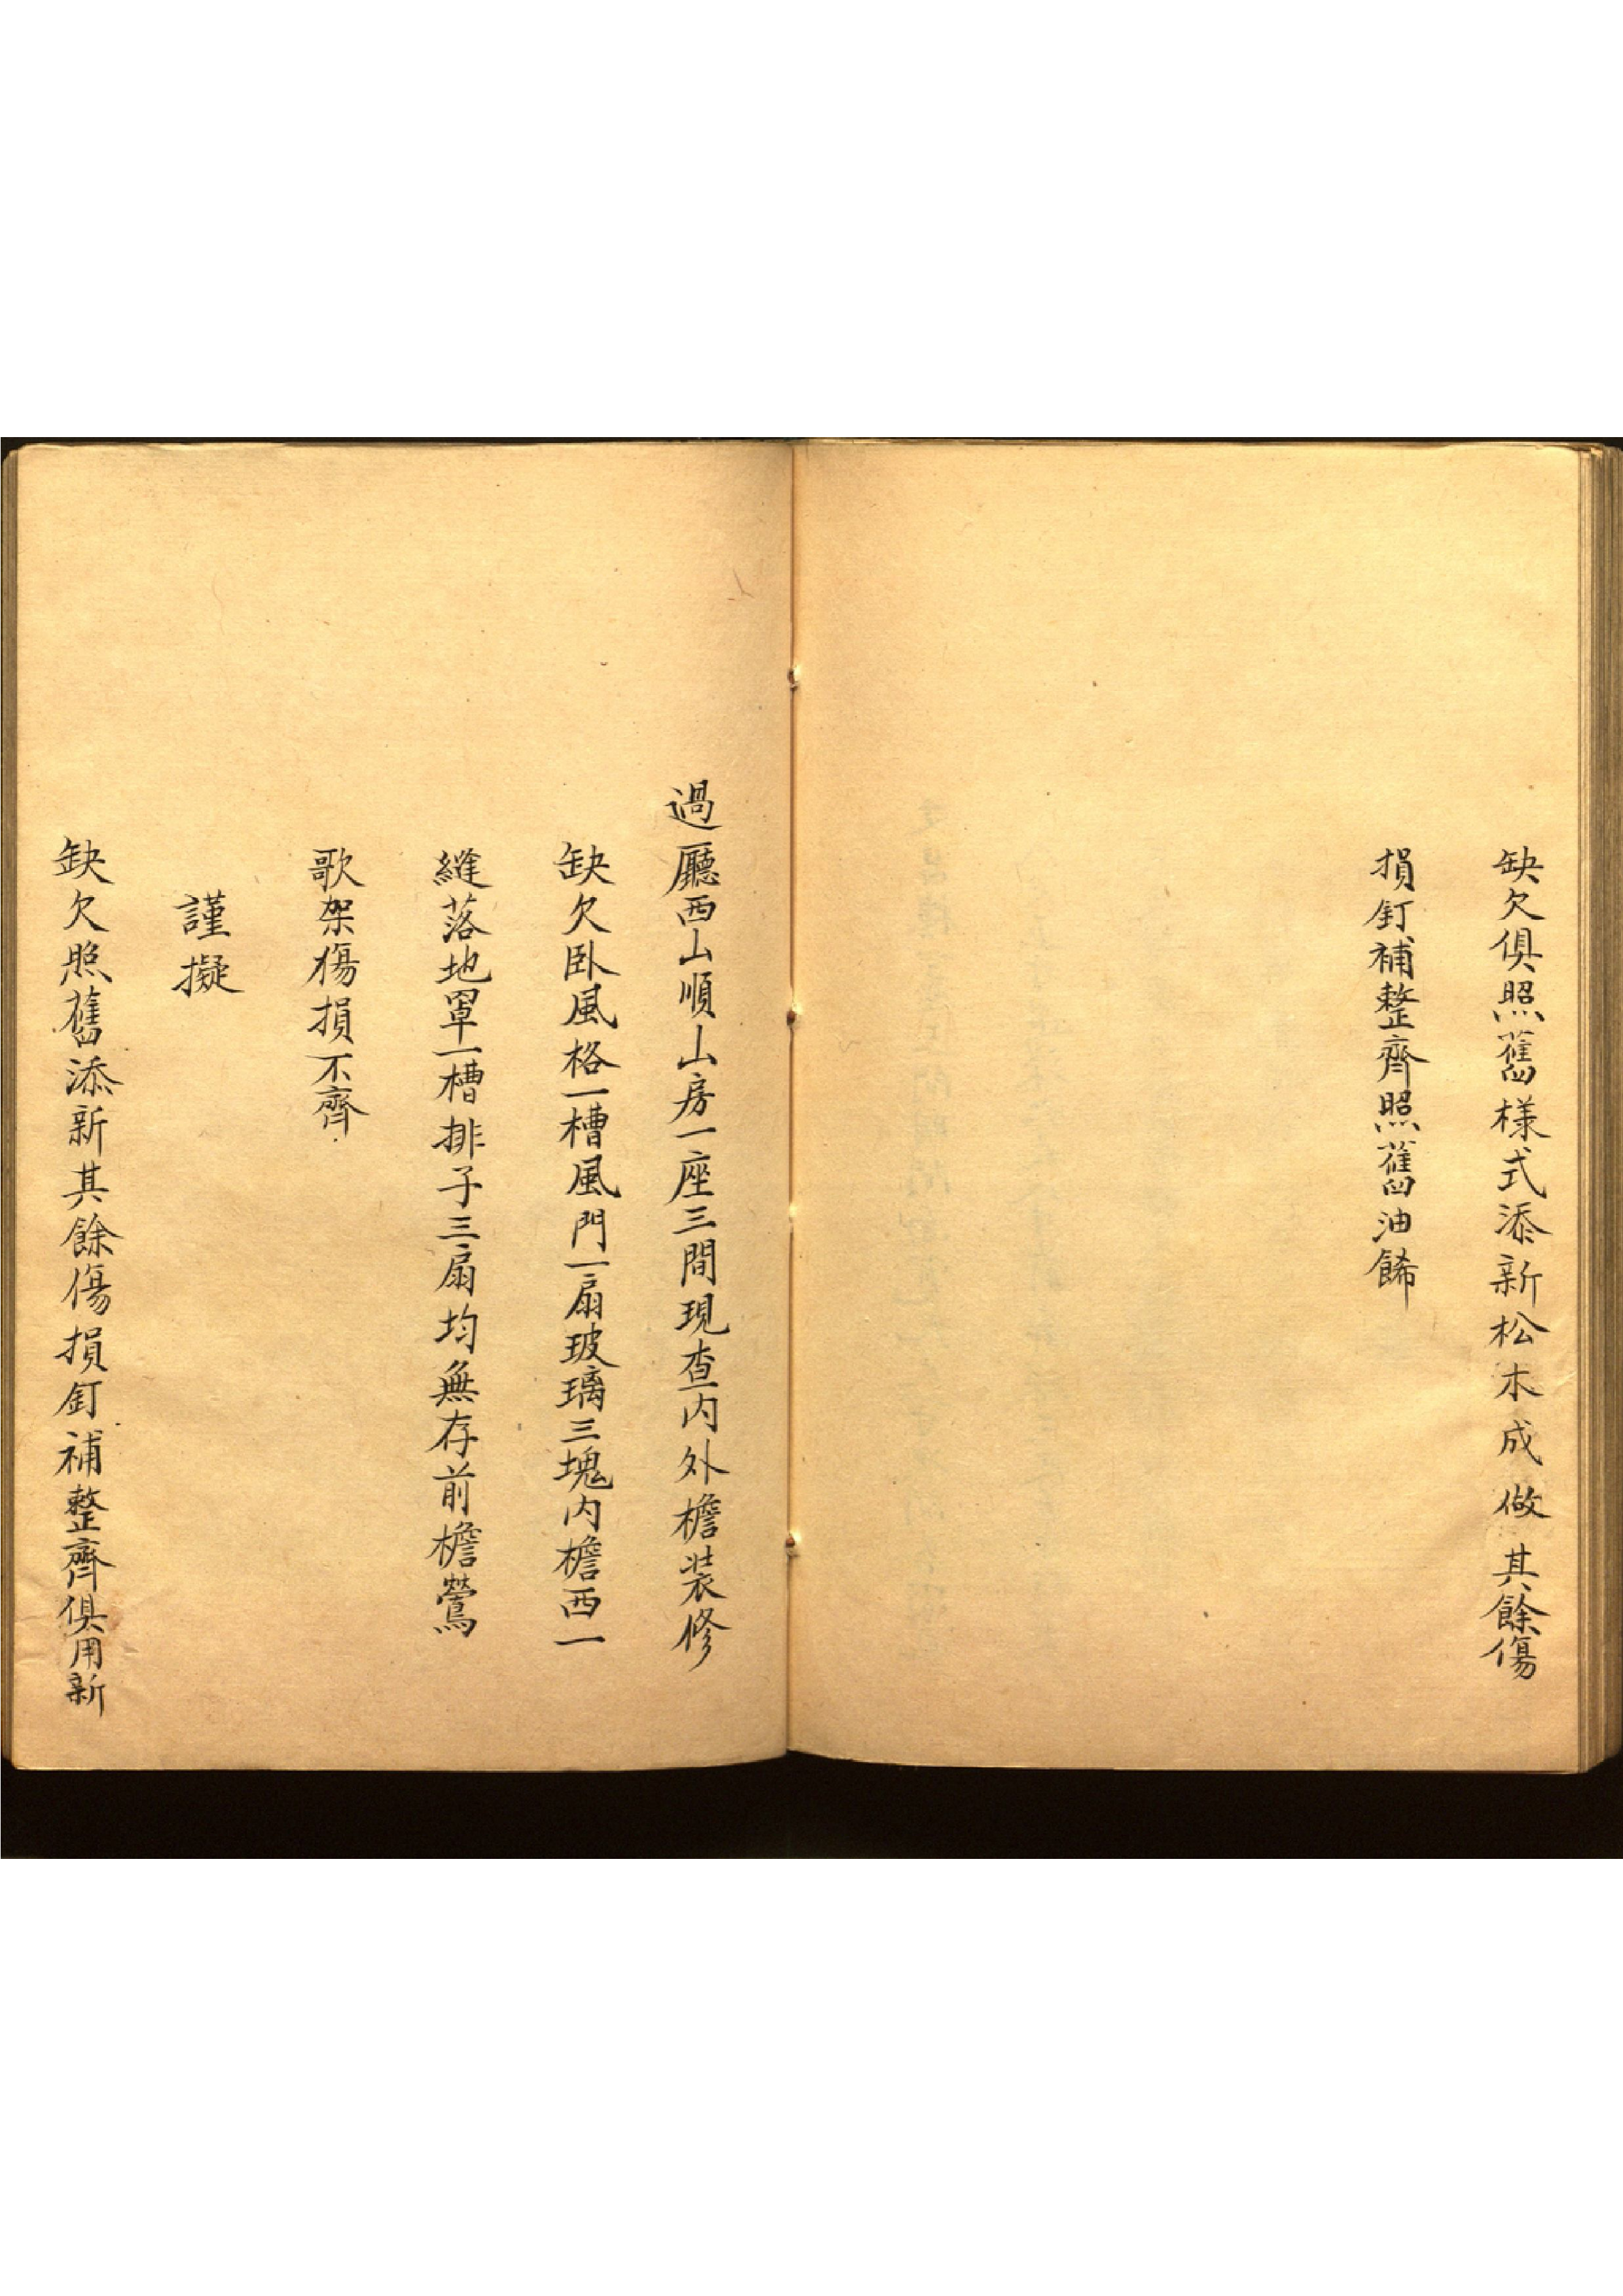 缺欠俱照舊樣式添新松木成做其餘傷
損釘補整齊照舊油餙
過廳西山順山房一座三間現查內外檐裝修
缺欠卧風格一槽風門一扇玻璃三塊內檐西一
縫落地罩一槽排子三扇均無存前檐鶯
歌架傷損不齊
謹擬
缺欠照舊添新其餘傷損釘補整齊俱用新